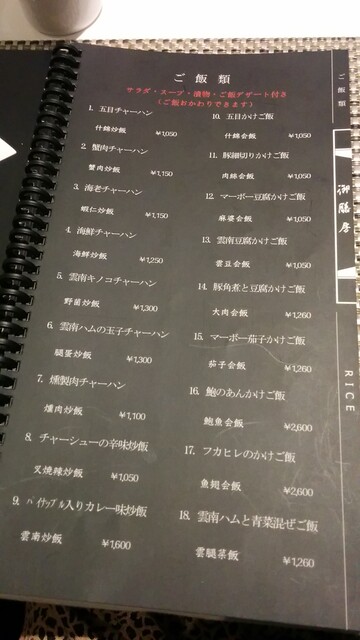 ご飯類
サラダ・スープ・漬物・ご飯デザート付き
(ご飯おかわりできます)
1. 五目チャーハン
什錦炒飯 ¥1,050
2. 蟹肉チャーハン
蟹肉炒飯 ¥1,150
3. 海老チャーハン
蝦仁炒飯 ¥1,150
4. 海鮮チャーハン
海鮮炒飯 ¥1,250
5. 雲南キノコチャーハン
野菌炒飯 ¥1,300
6. 雲南ハムの玉子チャーハン
腿蛋炒飯 ¥1,300
7. 燻製肉チャーハン
燻肉炒飯 ¥1,100
8. チャーシューの辛味炒飯
叉焼辣炒飯 ¥1,050
9. パイナップル入りカレー味炒飯
雲南炒飯 ¥1,600
10. 五目かけご飯
什錦会飯 ¥1,050
11. 豚細切りかけご飯
肉絲会飯 ¥1,050
12. マーボー豆腐かけご飯
麻婆会飯 ¥1,050
13. 雲南豆腐かけご飯
雲豆会飯 ¥1,050
14. 豚角煮と豆腐かけご飯
大肉会飯 ¥1,260
15. マーボー茄子かけご飯
茄子会飯 ¥1,260
16. 鮑のあんかけご飯
鮑魚会飯 ¥2,600
17. フカヒレのかけご飯
魚翅会飯 ¥2,600
18. 雲南ハムと青菜混ぜご飯
雲腿菜飯 ¥1,260
ご飯類
御膳房
RICE